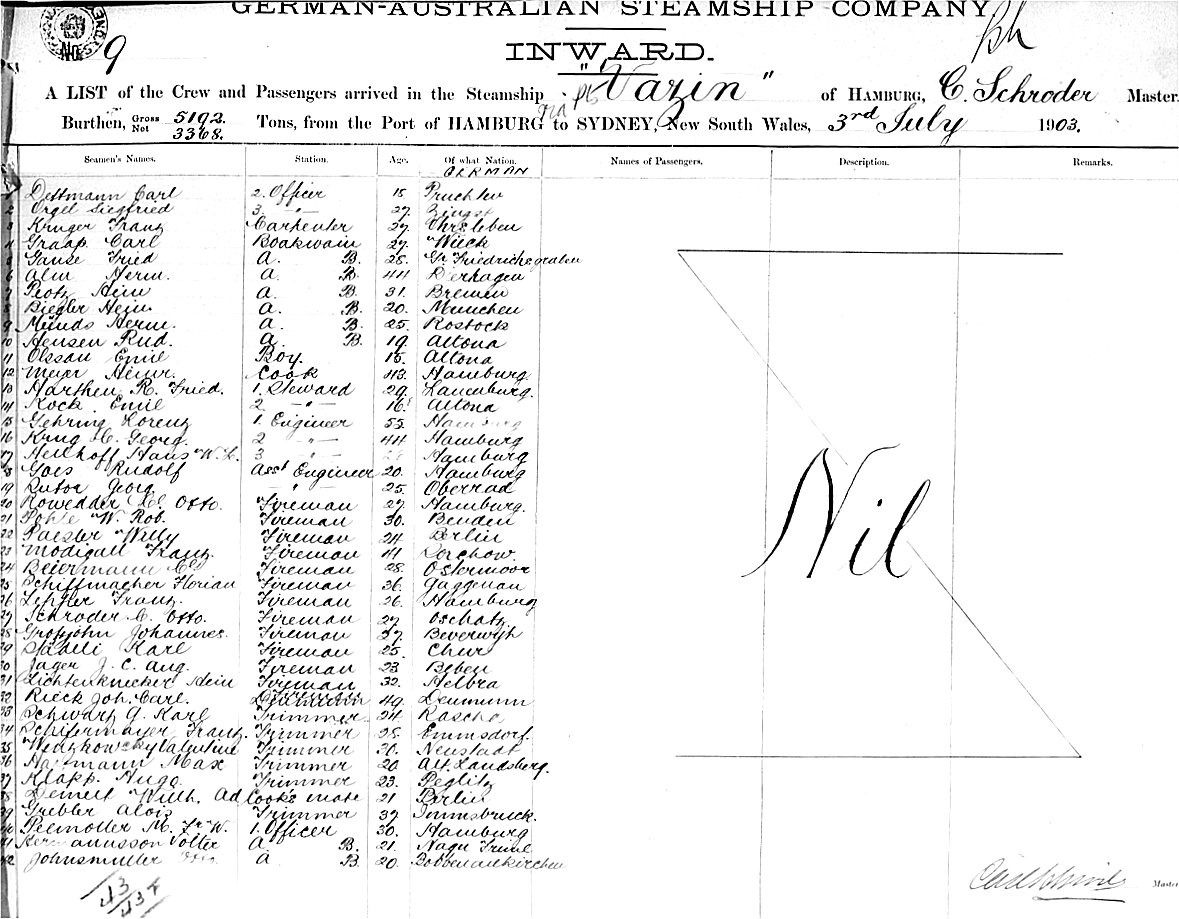 GERMAN-AUSTRALIAN STEAMSHIP COMPANY.
No. 9
INWARD.
A LIST of the Crew and Passengers arrived in the Steamship "Vazin" of HAMBURG, C. Schroder Master.
Burthen, Gross 5192. Not 3368. Tons, from the Port of HAMBURG to SYDNEY, New South Wales, 3rd July 1903.
Seamen's Names. Station. Age. Of what Nation. Names of Passengers. Description. Remarks.
GERMAN
1 Dettmann Carl 2. Officer
2 Orgel Siegfried 3. -"- 27. Zingst
3 Kruger Franz Carpenter 27.
4 Graap Carl Boatswain 27. Wieck
5 Ganse Fried A. B. 28. Gr. Friedrichsgraben
6 Alm Herm. A. B. 44
7 Piotz Hein A. B. 31. Bremen
8 Biegler Hein. A. B. 20. Munchen
9 Munds Herm. A. B. 25. Rostock
10 Hensen Rud. A. B. 19. Altona
11 Olssau Emil Boy. 15. Altona
12 Meyer Heinr. Cook 43. Hamburg
13 Harthen R. Fried. 1. Steward 29. Lauenburg.
14 Kock Emil 2. -"- 16. Altona
15 Gehring Lorenz 1. Engineer 55. Hamburg
16 Krug H. Georg. 2 -"- 44 Hamburg
17 Heilhoff Hans W. 3 -"- Hamburg
18 Goes Rudolf Asst Engineer 20. Hamburg
19 Georg -"- 25. Oberrad
20 Rowedder Otto. Fireman 27. Hamburg.
21 W. Rob. Fireman 30. Beuden
22 Paesler Willy Fireman 24 Berlin
23 Modigall Franz. Fireman 41
24 Beiermann Fireman 28. Ostermoor
25 Schiffmacher Florian Fireman 36. Gaggenau
26 Franz. Fireman 26. Hamburg
27 Schroder C. Otto. Fireman 27 Oschatz.
28 Grossjohn Johannes. Fireman 37. Beverwyk
29 Karl Fireman 25. Chur
30 Jager J. C. Aug. Fireman 23
31 Lichtenknecker Hein Fireman 32. Helbra
32 Rieck Joh. Carl. Fireman 49. Demmin
33 Schwarz G. Karl Trimmer. 24
34 Franz. Trimmer 28. Emmsdorf.
35 Valentine Trimmer 30. Neustadt
36 Hartmann Max Trimmer 20 Alt. Landsberg.
37 Klapp. Hugo Trimmer 23. Peglitz
38 Demelt Wilh. Ad Cook's mate 21 Berlin
39 Grebler Alois Trimmer 37 Innsbruck.
40 Peemoller M. Fr. W. 1. Officer 30. Hamburg
41 Hermanusson Volter A. B. 21. Nagu
42 Johnsmuller A B. 20.
Nil
Master